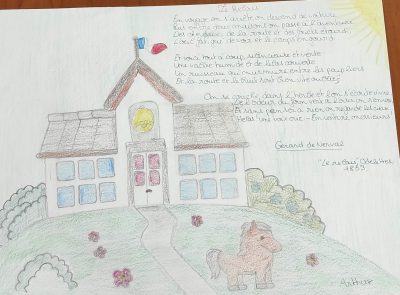 Le Relais
En voyage on s'arrête, on descend de voiture
Puis entre deux maisons on passe à l'aventure
Des chevaux de la route et des fouets étourdi
L'oeil fatigué de voir et le corps engourdi
Et voici tout à coup silencieuse et verte
Une vallée humide et de lilas couverte
Un ruisseau qui murmure entre les peupliers
Et la route et le bruit sont bien vite oubliés
On se couche dans l'herbe et l'on s'écoute vivre
De l'odeur du foin vert à loisir on s'enivre
Et sans penser à rien on regarde les cieux
Hélas une voix crie - En voiture messieurs
Gérard de Nerval
"Le relais", Odelettes
1853
Arthur